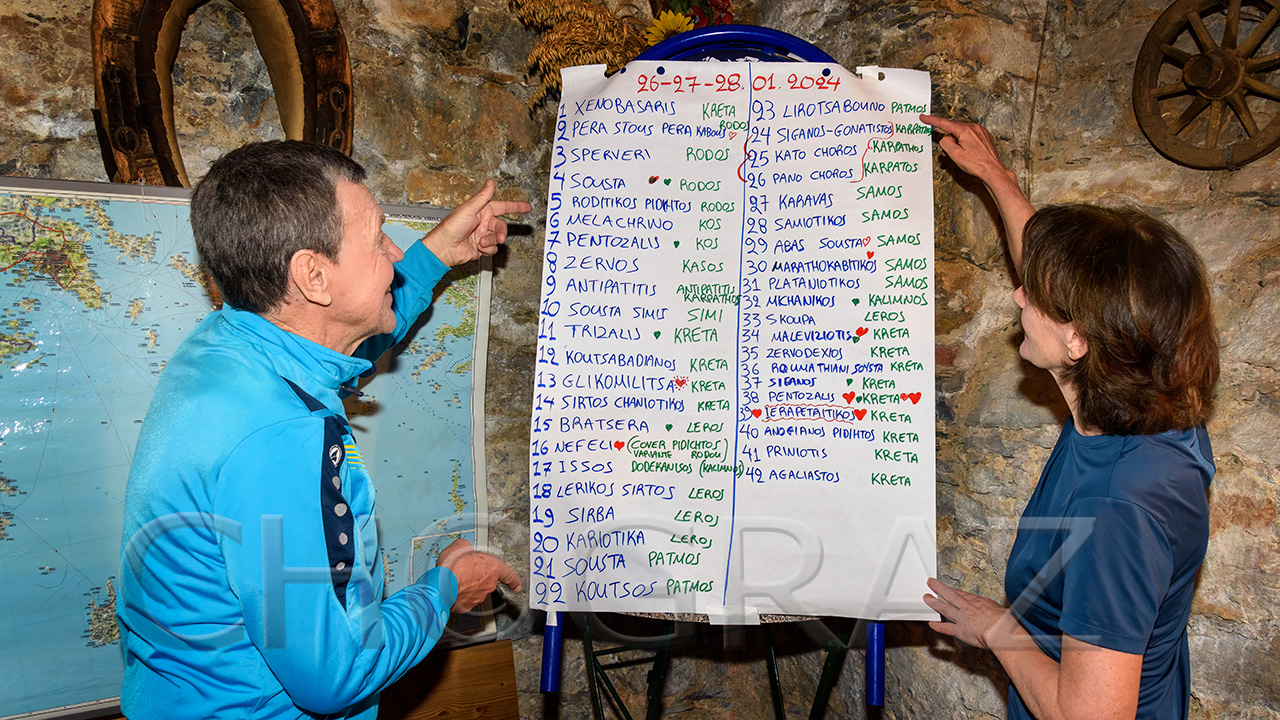 26-27-28. 01. 2024
1 XENOBASARIS KRETA
2 PERA STOUS PERA KABOUS RODOS
3 SPERVERI RODOS
4 SOUSTA RODOS
5 RODITIKOS PIDIKHTOS RODOS
6 MELACHRINO KOS
7 PENTOZALIS KOS
8 ZERVOS KASOS
9 ANTIPATITIS ANTIPATITIS
KARPATHOS
10 SOUSTA SIMIS SIMI
11 TRIZALIS KRETA
12 KOUTSABADIANOS KRETA
13 GLIKOMILITSA KRETA
14 SIRTOS CHANIOTIKOS KRETA
15 BRATSERA LEROS
16 NEFELI (COVER PIDICHTOS)
VARIANTE RODOU
17 ISSOS DODEKANISOS (KALIMNOS)
18 LERIKOS SIRTOS LEROS
19 SIRBA LEROS
20 KARIOTIKA LEROS
21 SOUSTA PATMOS
22 KOUTSOS PATMOS
23 LIROTSABOUNO PATMOS
24 SIGANOS-GONATISTOS KARPATHOS
25 KATO CHOROS KARPATHOS
26 PANO CHOROS KARPATOS
27 KARAVAS SAMOS
28 SAMIOTIKOS SAMOS
29 ABAS SOUSTA SAMOS
30 MARATHOKABITIKOS SAMOS
31 PLATANIOTIKOS SAMOS
32 MICHANIKOS KALIMNOS
33 SKOUPA LEROS
34 MALEVIZIOTIS KRETA
35 ZERVODEXIOS KRETA
36 ROUMATHIANI SOUSTA KRETA
37 SIGANOS KRETA
38 PENTOZALIS KRETA
39 IERAPETAITIKOS KRETA
40 ANOGIANOS PIDIHTOS KRETA
41 PRINIOTIS KRETA
42 AGALIASTOS KRETA
CHOGRAZ